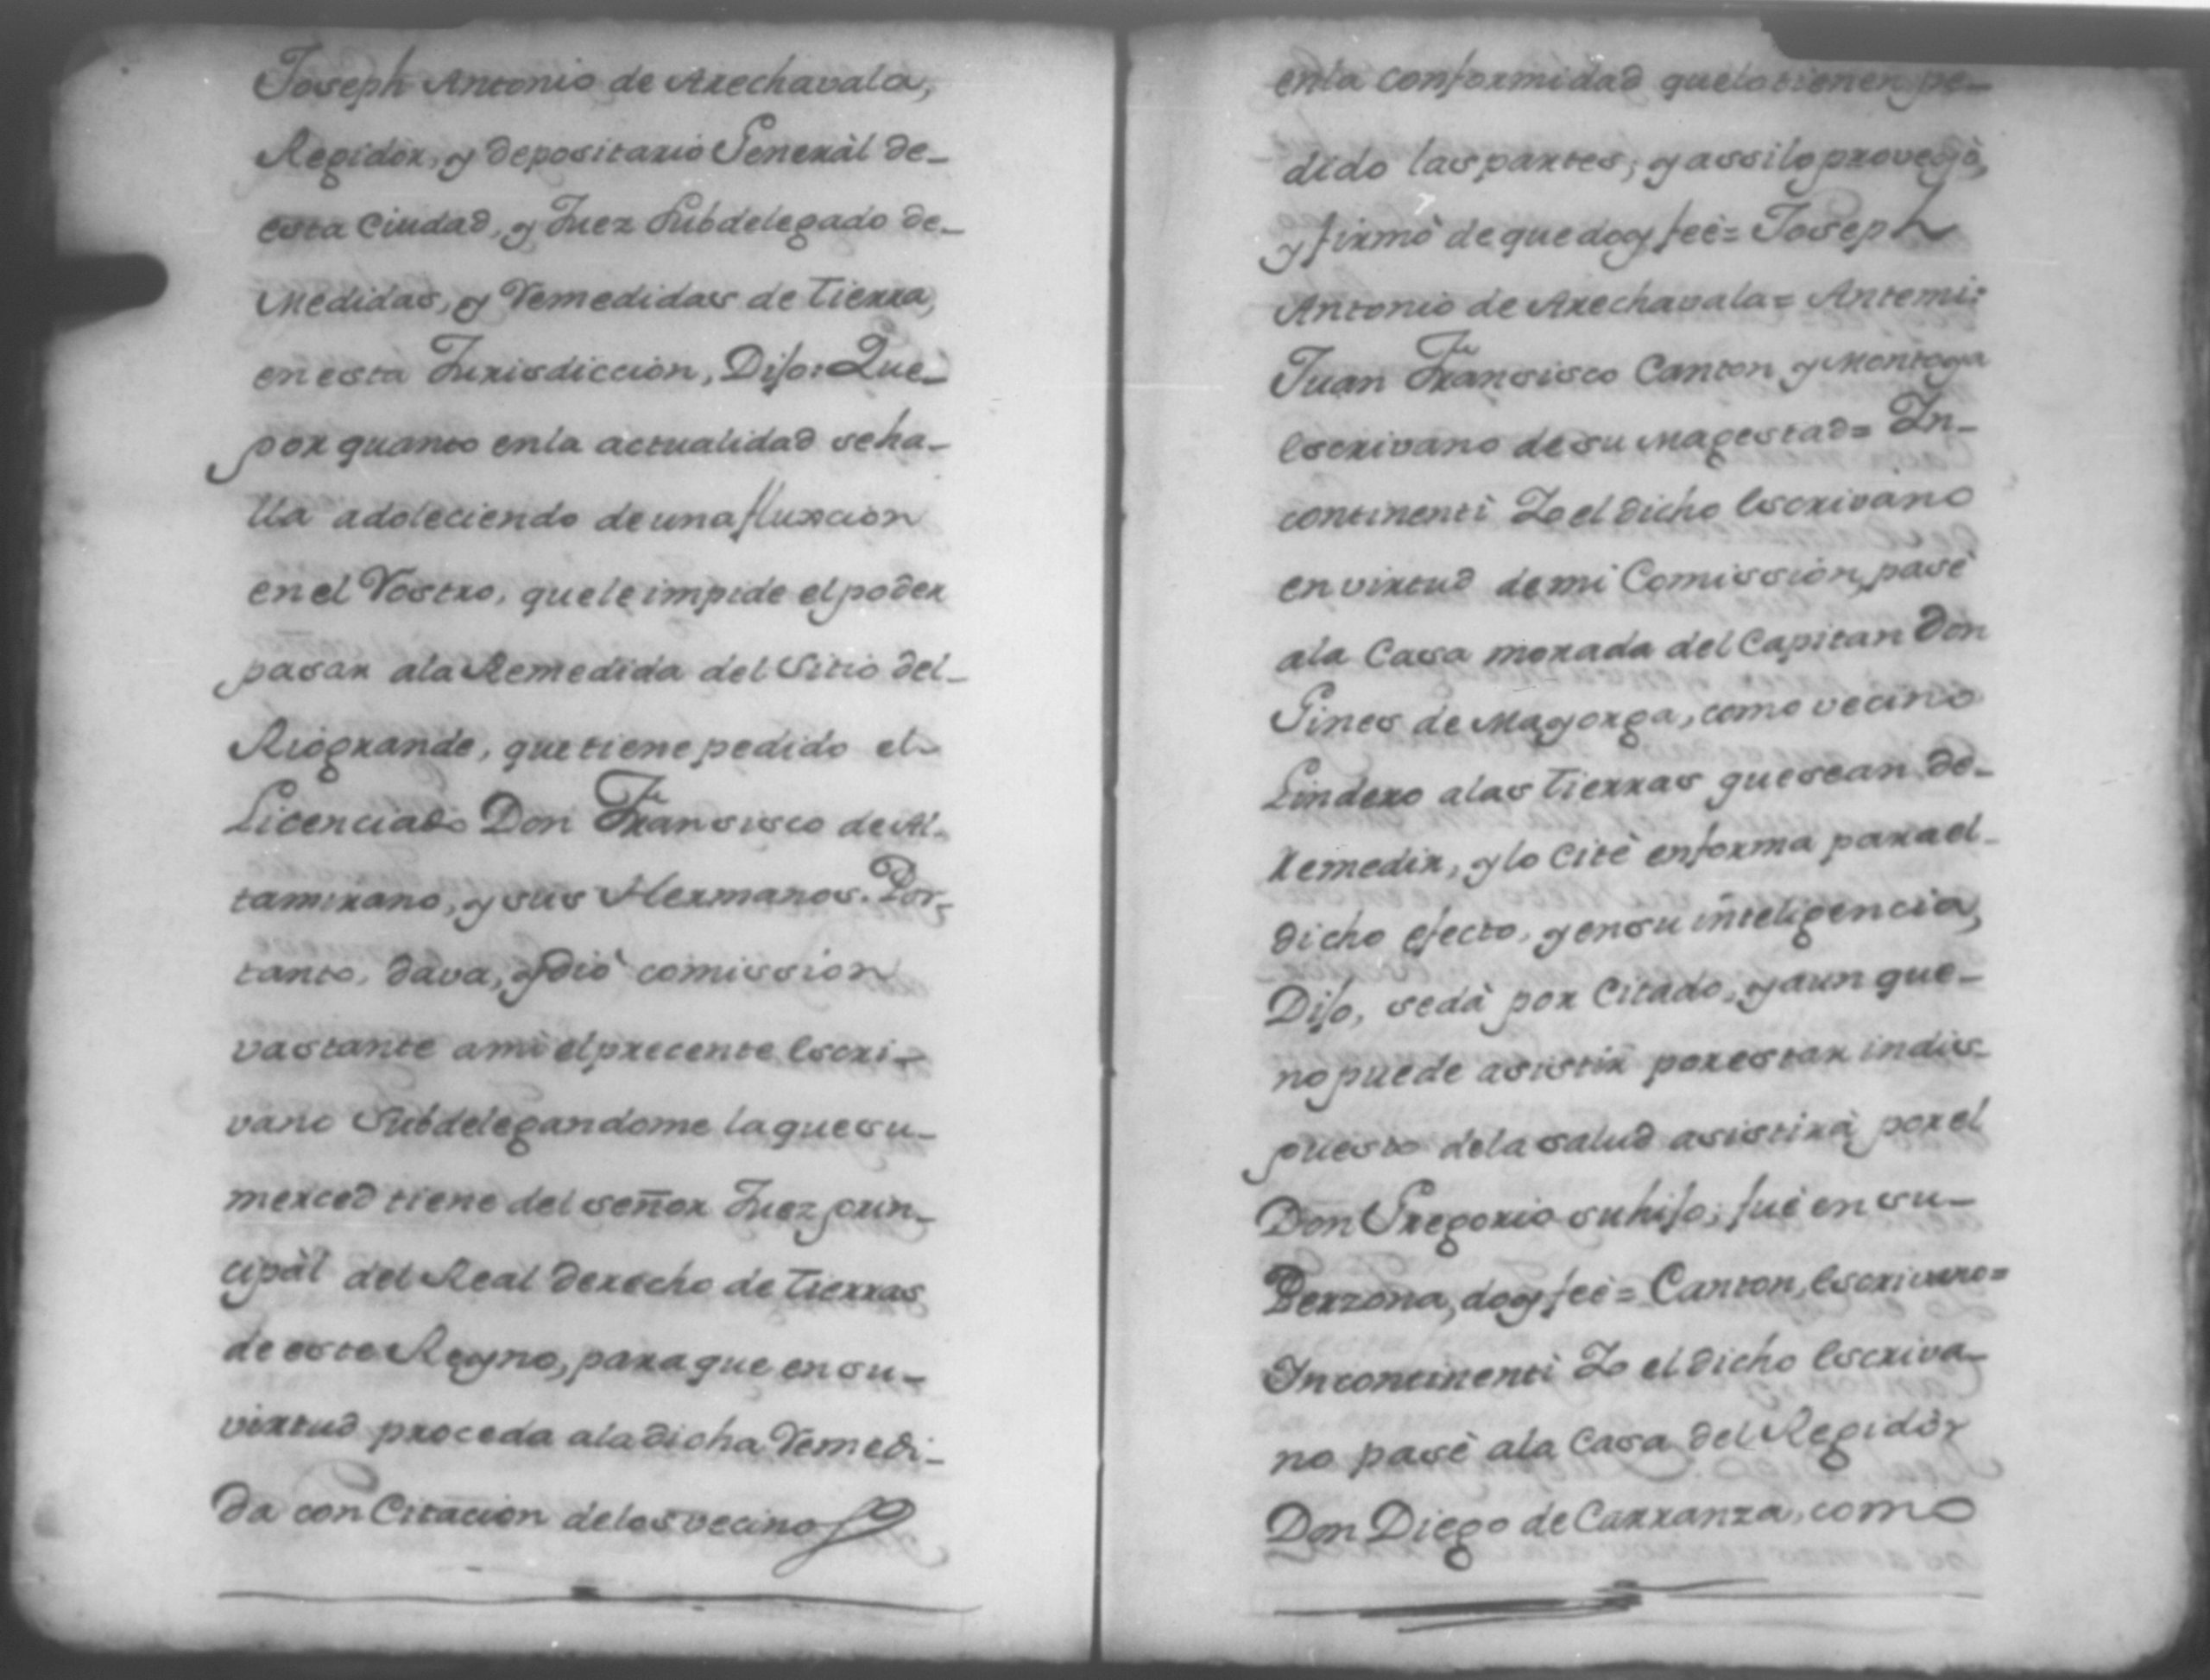 Joseph Antonio de Arechavala,
Regidor, y depositario General de-
esta Ciudad, y Juez Subdelegado de-
Medidas, y Remedidas de tierra,
en esta Jurisdiccion, Dijo: Que-
por quanto enla actualidad seha-
lla adoleciendo de una fluxcion
en el Rostro, quele impide el poder
pasar ala Remedida del Sitio del-
Riogrande, que tiene pedido el-
Licenciado Don Fransisco de Al-
tamirano, y sus Hermanos. Por-
tanto, dava, y dió comission
vastante ami el precente Escri-
vano Subdelegandome la que su-
merced tiene del señor Juez prin-
cipàl del Real derecho de tierras
de este Reyno, para que en su-
virtud proceda ala dicha Remedi-
da con Citacion delos vecinos
enla conformidad quelo tienen pe-
dido las partes; y assi lo proveyò,
y firmò de que doy feè= Joseph
Antonio de Arechavala= Antemi:
Juan Fransisco Canton y Montoya
Escrivano de su Magestad= In-
continenti Yo el dicho Escrivano
en virtud de mi Comission, pasè
ala Casa morada del Capitan Don
Gines de Mayorga, como vecino
Lindero alas tierras que sean de-
Remedir, y lo Citè enforma para el-
dicho efecto, y en su inteligencia,
Dijo, se dà por Citado, y aun que-
no puede asistir por estar indis-
puesto dela salud asistirà por el
Don Gregorio su hijo; fuè en su-
Perzona, doy feè= Canton, Escrivano=
Incontinenti Yo el dicho Escriva-
no pasè ala Casa del Regidòr
Don Diego de Carranza, como